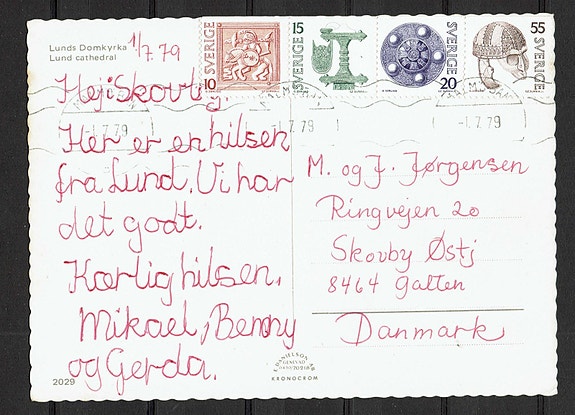 Lunds Domkyrka
Lund cathedral
1/7 79
Hej i Skovby.
Her er en hilsen
fra Lund. Vi har
det godt.
Kærlig hilsen.
Mikael, Benny
og Gerda.
2029
SVERIGE 10
15 SVERIGE
SVERIGE 20
55 SVERIGE
-1.7.79
-1.7.79
-1.7.79
M. og J. Jørgensen
Ringvejen 20
Skovby Østj
8464 Galten
Danmark
KRONOCROM